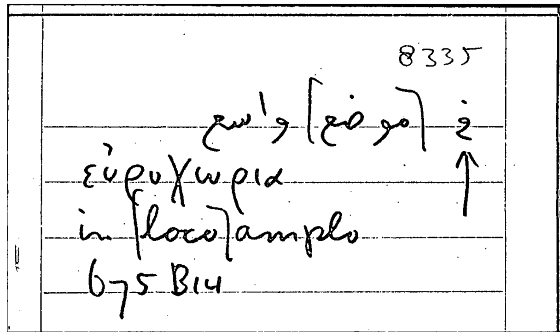 8335
في [موضع] واسع
εὐρυχωρια
in [loco] amplo
675 B14